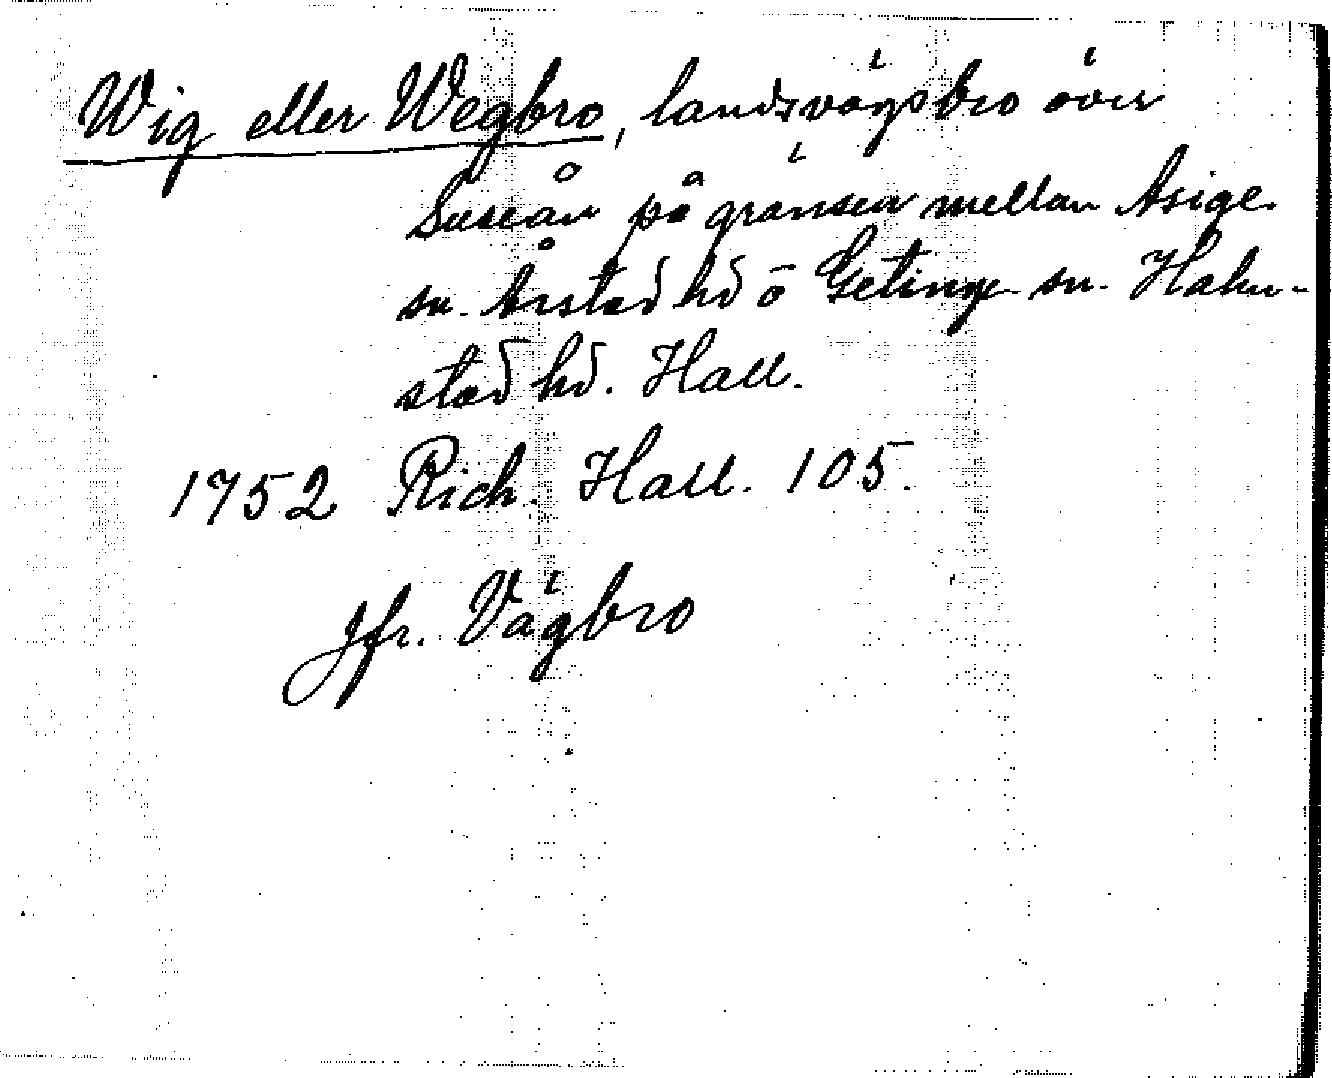 Wig eller Wegbro, landsvägsbro över
Suseån på gränsen mellan Asige
sn. Årstad hd o Getinge sn. Halm-
stad hd. Hall.
1752 Rich. Hall. 105.
Jfr. Vägbro